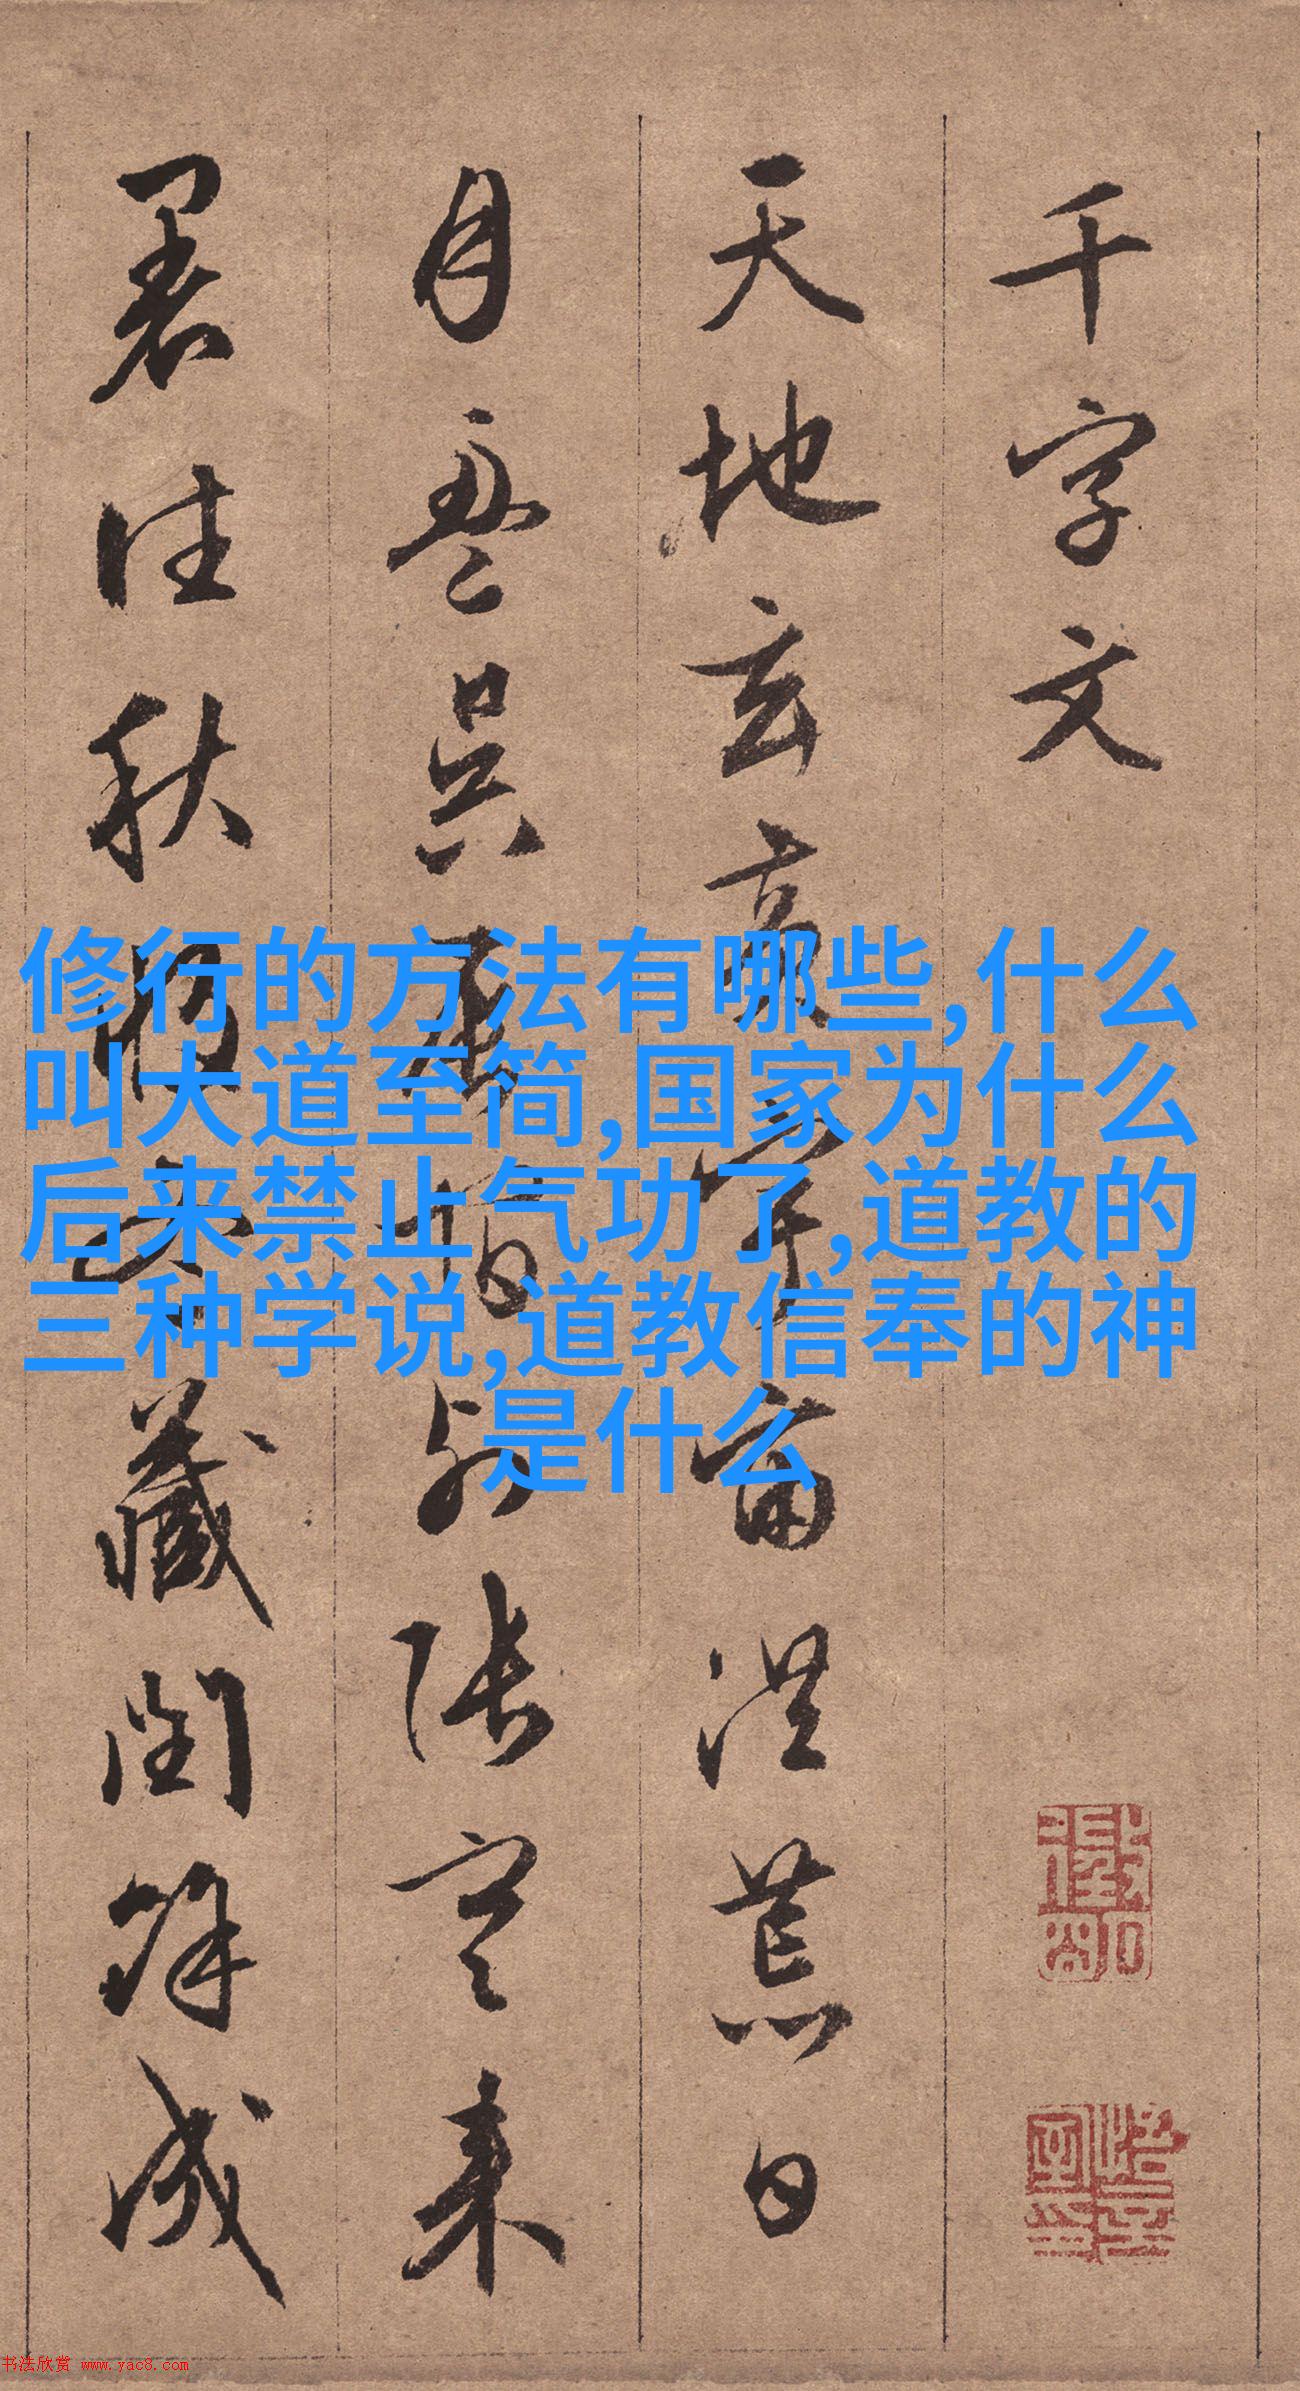 千字文
天地玄黃宇宙洪荒日
月盈昃辰宿列張寒來
暑往秋收冬藏閏餘成
修行的方法有哪些,什么
叫大道至简,国家为什么
后来禁止气功了,道教的
三种学说,道教信奉的神
是什么
书法欣赏 www.yac8.com